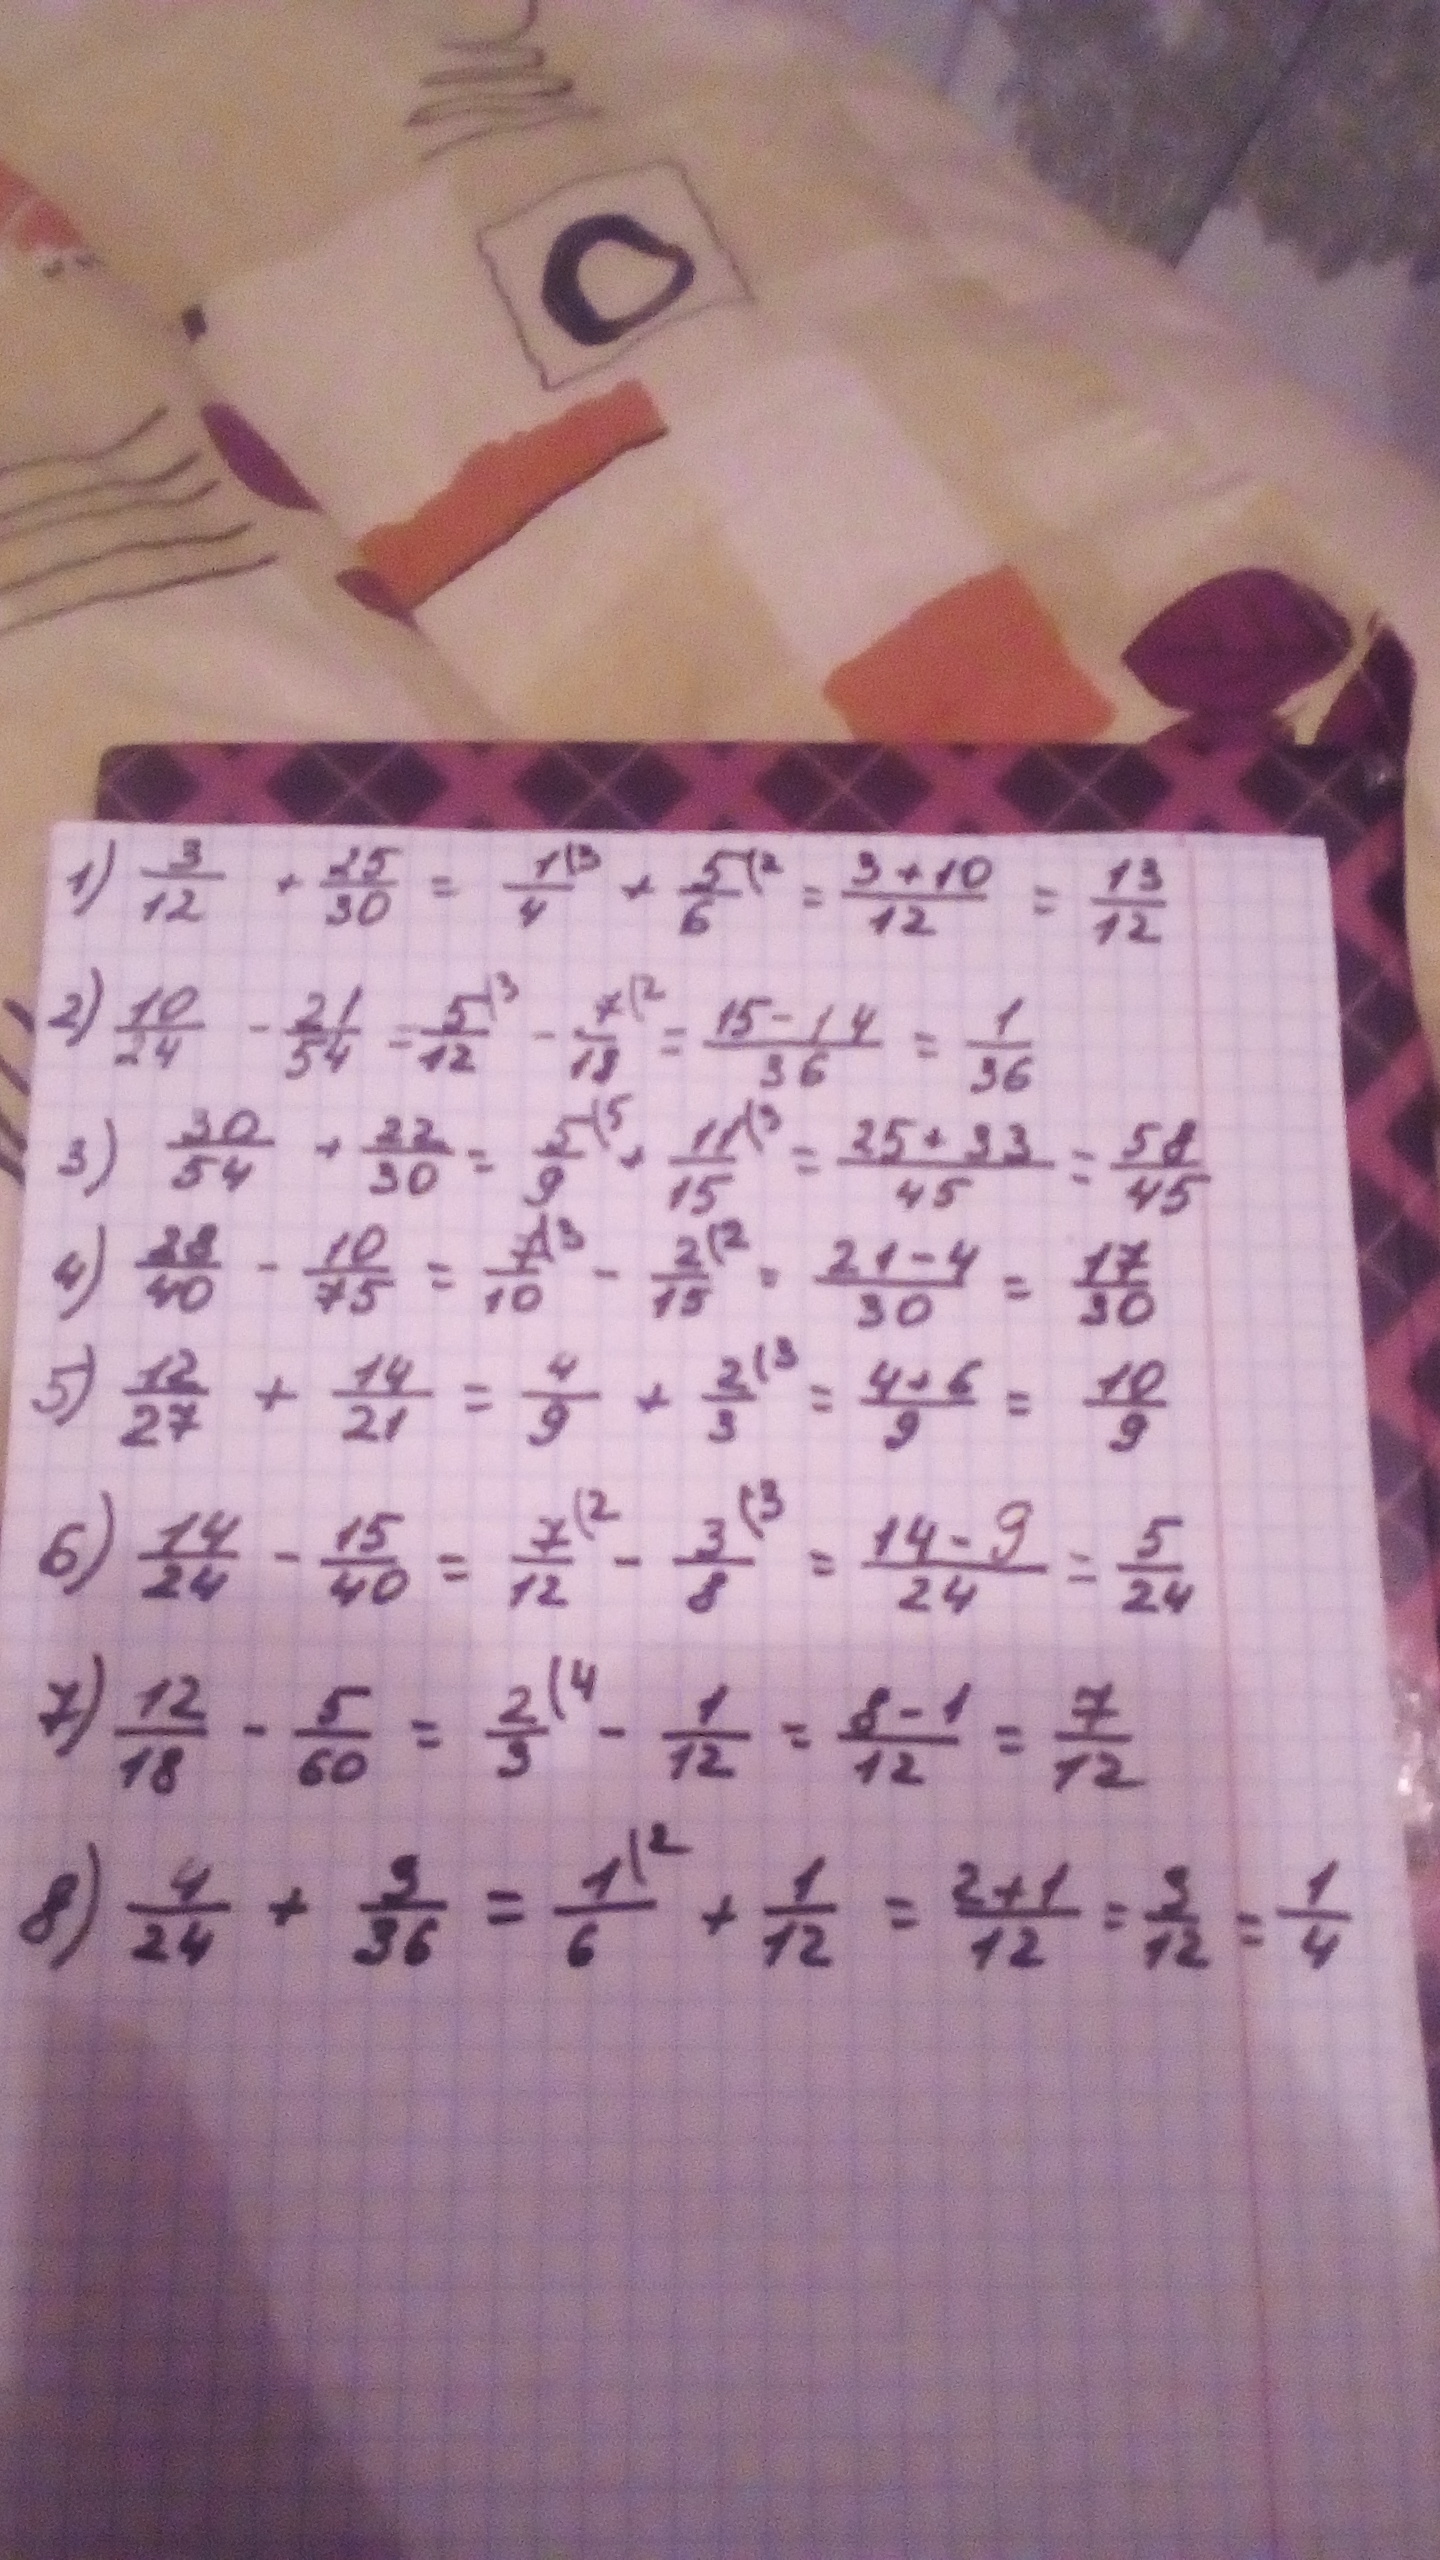 1) 3/12 + 25/30 = 1(3/4 + 5(2/6 = 3+10/12 = 13/12
2) 10/24 - 21/54 = 5(3/12 - 7(2/18 = 15-14/36 = 1/36
3) 30/54 + 22/30 = 5(5/9 + 11(3/15 = 25+33/45 = 58/45
4) 28/40 - 10/75 = 7(3/10 - 2(2/15 = 21-4/30 = 17/30
5) 12/27 + 14/21 = 4/9 + 2(3/3 = 4+6/9 = 10/9
6) 14/24 - 15/40 = 7(2/12 - 3(3/8 = 14-9/24 = 5/24
7) 12/18 - 5/60 = 2(4/3 - 1/12 = 8-1/12 = 7/12
8) 4/24 + 3/36 = 1(2/6 + 1/12 = 2+1/12 = 3/12 = 1/4